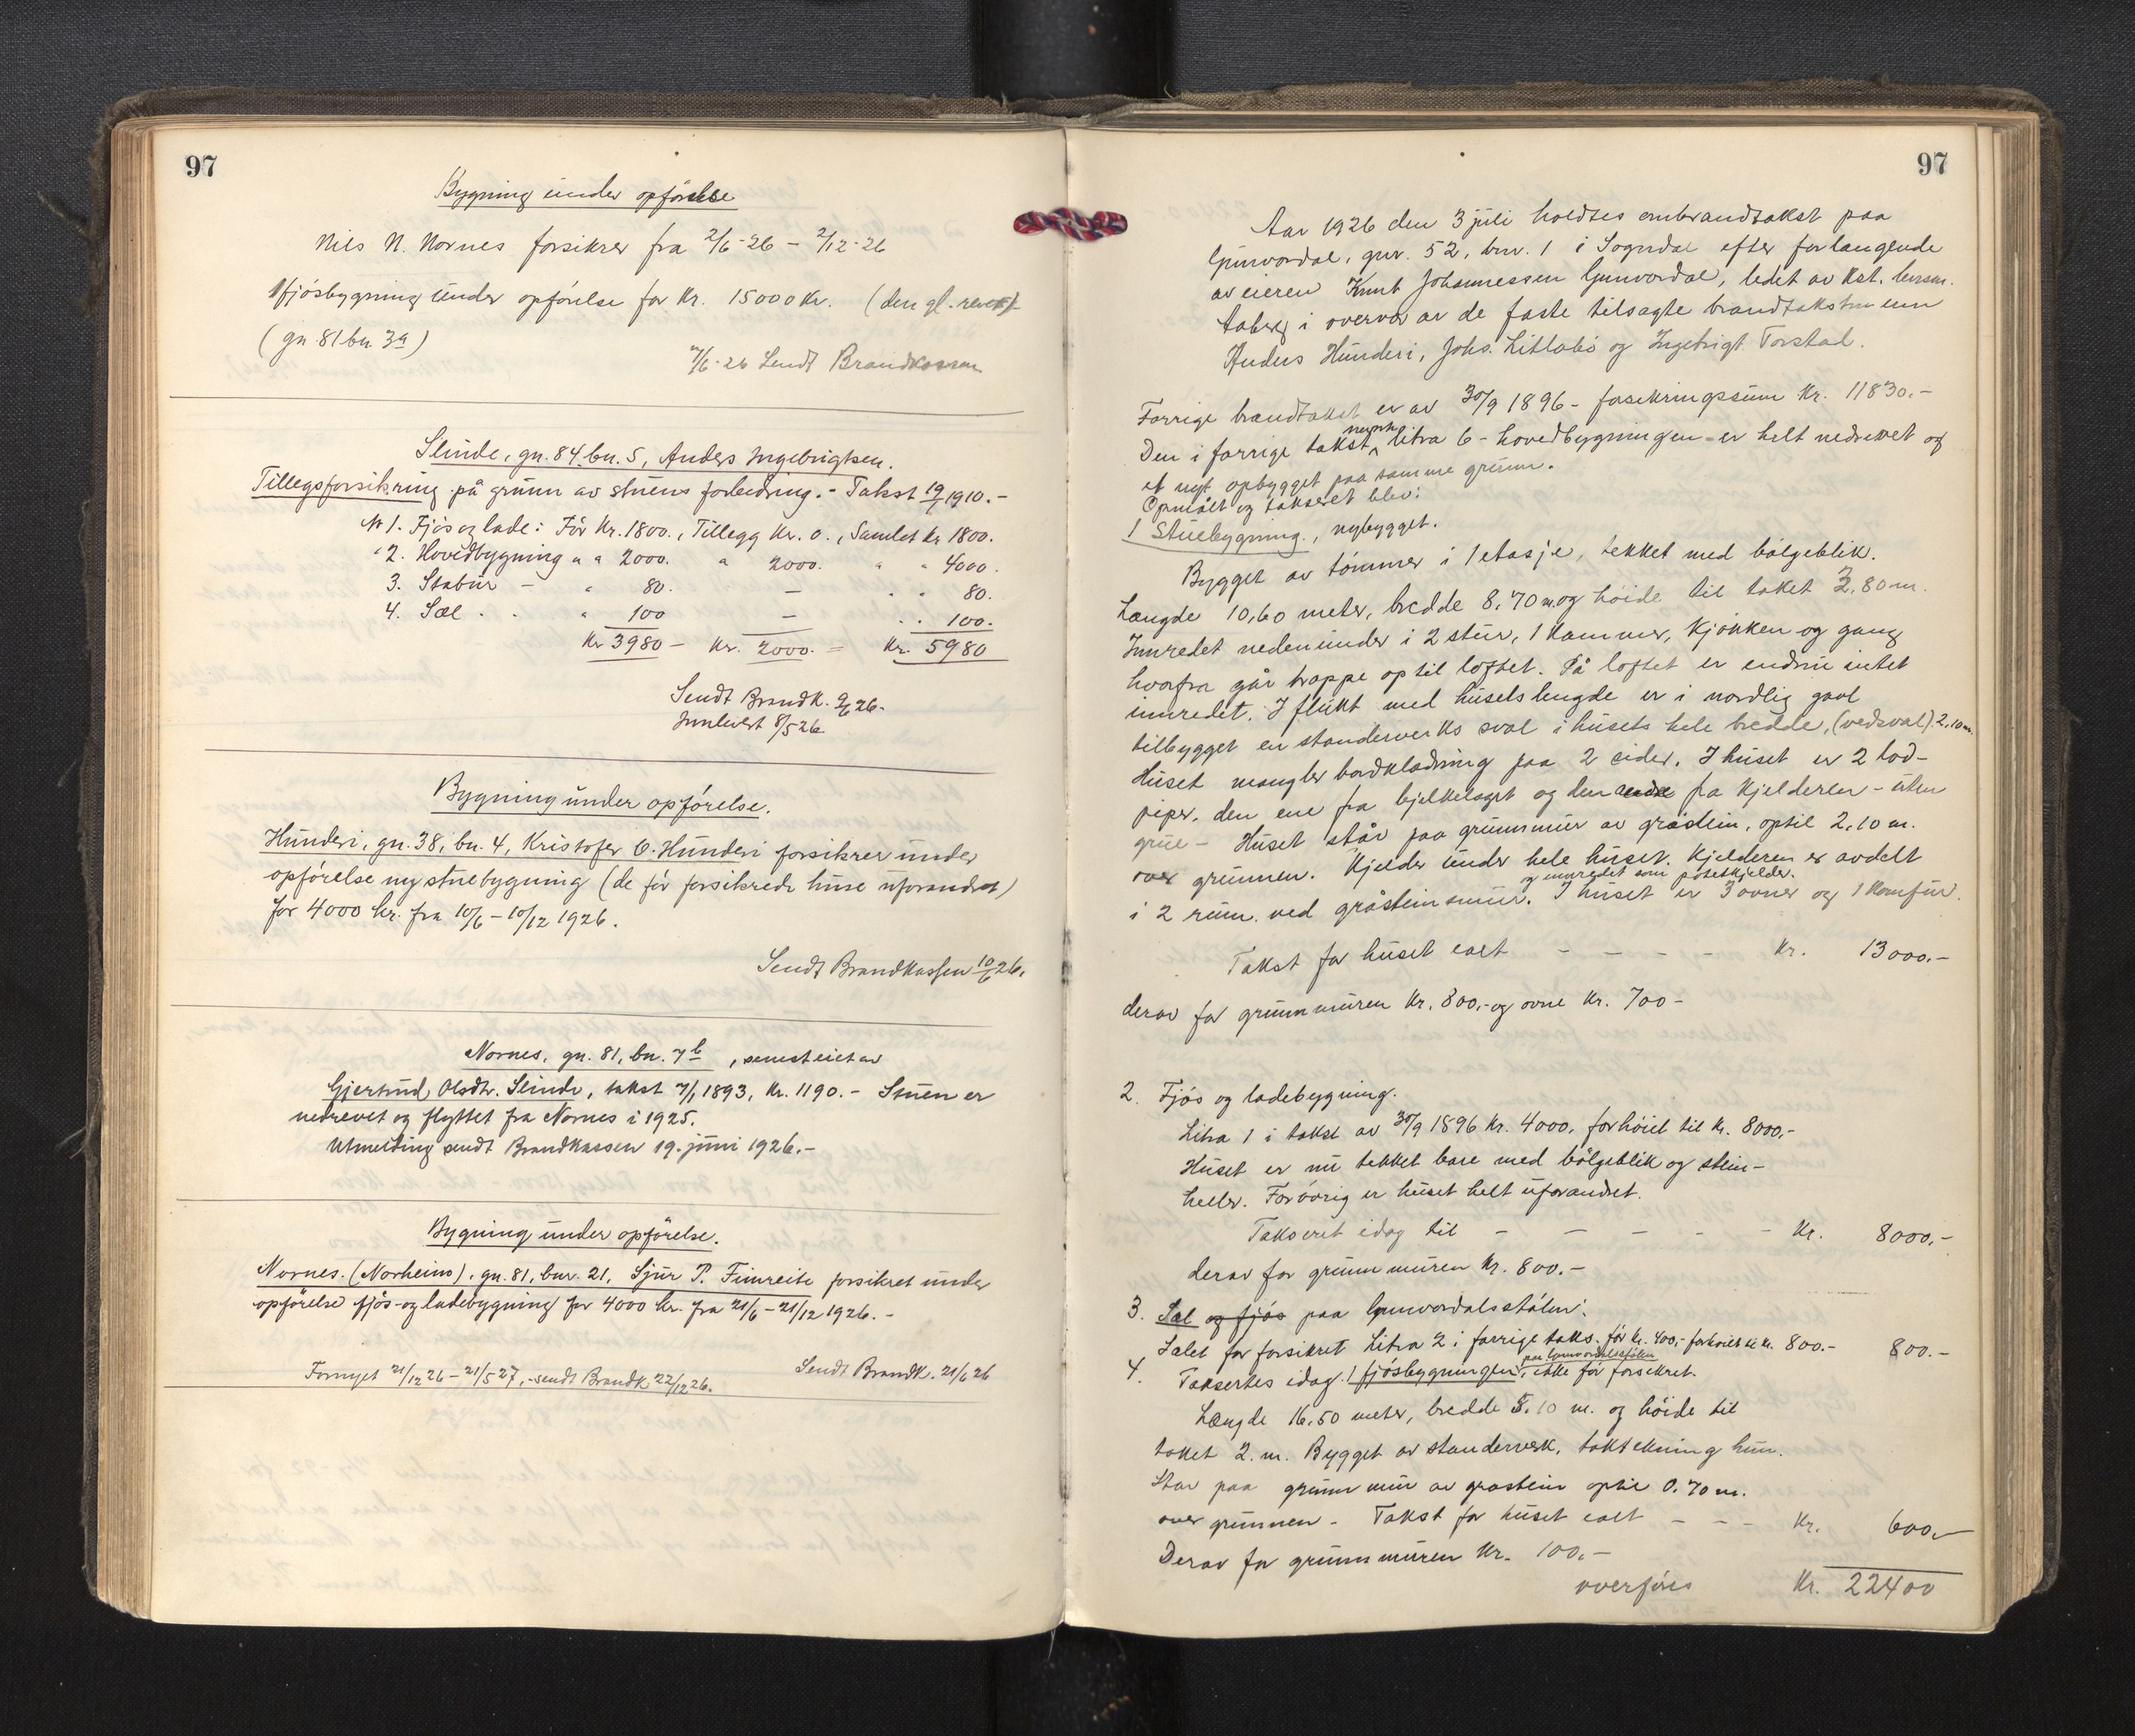 97
Bygning under opförelse
Nils N. Nornes forsikrer fra 2/6-26 - 2/12-26
1 fjósbygning under opförelse for Kr. 15000 Kr. (den gl. revet)
(gn. 81 bn 3a)
7/6-26 Sendt Brandkassen
Slinde, gn. 84, bn. 5, Anders Ingebrigtsen.
Tillegsforsikring på grunn av stuens forbedring. - Takst 19/ 1910. -
No 1. Fjös og lade: För Kr. 1800., Tillegg Kr. 0., Samlet kr 1800.
" 2. Hovedbygning " " 2000. " 2000. " " 4000.
3. Stabur - " 80. - " " 80.
4. Sæl . . " 100 - . . 100.
Kr 3980 - Kr. 2000. = Kr. 5980
Sendt Brandk. 9/6 26.
Innlevert 8/5 26.
Bygning under opförelse.
Hunderi, gn. 38, bn. 4, Kristofer O. Hunderi forsikrer under
opförelse ny stuebygning (de för forsikrede huse uforandret)
for 4000 kr. fra 10/6 - 10/12 1926.
Sendt Brandkassen 10/6 26.
Nornes, gn. 81, bn. 7b, senest eiet av
Gjertrud Olsdtr. Slinde, takst 7/1 1893, Kr. 1190. - Stuen er
nedrevet og flyttet fra Nornes i 1925.
Utmelding sendt Brandkassen 19. juni 1926. -
Bygning under opförelse.
Nornes. (Norheim), gn. 81, bnr. 21, Sjur P. Fimreite forsikret under
opförelse fjös- og ladebygning for 4000 kr. fra 21/6 - 21/12 1926. -
Sendt Brandk. 21/6 26
Fornyet 21/12 26 - 21/5 27, - sendt Brandk 22/12 26.
97
Aar 1926 den 3 juli holdtes ombrandtakst paa
Gunvordal, gnr. 52, bnr. 1 i Sogndal efter forlangende
av eieren Knut Johannessen Gunvordal, ledet av kst. lensm.
Aaberg i overvær av de faste tilsagte brandtakstmenn
Anders Hunderi, Johs. Litlabö og Ingebrigt Torstad.
Forrige brandtakst er av 30/9 1896 - forsikringssum Kr. 11830.-
Den i forrige takst nevnte litra 6 - hovedbygningen - er helt nedrevet og
et nyt opbygget paa samme grunn.
Opmålt og taksert blev:
1 Stuebygning, nybygget.
Bygget av tömmer i 1 etasje, tekket med bölgeblik.
Længde 10,60 meter, bredde 8,70 m. og höide til taket 3,80 m.
Innredet nedenunder i 2 stur, 1 kammer, kjökken og gang
hvorfra går trappe op til loftet. På loftet er endnu intet
innredet. I flukt med husets lengde er i nordlig gavl
tilbygget en standerverks sval i husets hele bredde, (vedsval) 2,10 m.
Huset mangler bordklædning paa 2 sider. I huset er 2 tod-
piper, den ene fra bjelkelaget og den andre fra kjelderen - uten
grue - Huset står paa grunnmur av gråstein, optil 2,10 m.
over grunnen. Kjelder under hele huset. Kjelderen er avdelt
i 2 rum ved gråsteinsmur. og innredet som potetkjelder. I huset er 3 ovner og 1 komfur.
Takst for huset ialt - - - - - Kr. 13000.-
derav for grunnmuren Kr. 800,- og ovne Kr. 700 -
2. Fjös og ladebygning.
Litra 1 i takst av 30/9 1896 Kr. 4000, forhöiet til kr. 8000,-
Huset er nu tekket bare med bölgeblik og stein-
heller. Forövrig er huset helt uforandret.
Taksert idag til - - - - - Kr. 8000,-
derav for grunnmuren kr. 800.-
3. Sæl og fjós paa Gunvordalsstölen:
Sælet för forsikret Litra 2 i forrige takst. för kr. 400,- forhöiet til kr. 800.- 800.-
4. Taksertes idag 1 fjósbygningen, paa Gunvordalsstölen ikke för forsikret.
Længde 16,50 meter, bredde 5,10 m. og höide til
taket 2. m. Bygget av standerverk, taktekning hun.
Står paa grunnmur av gråstein optil 0,70 m.
over grunnen - Takst for huset ialt - - - Kr. 600,-
Derav for grunnmuren Kr. 100,-
overföres Kr. 22400